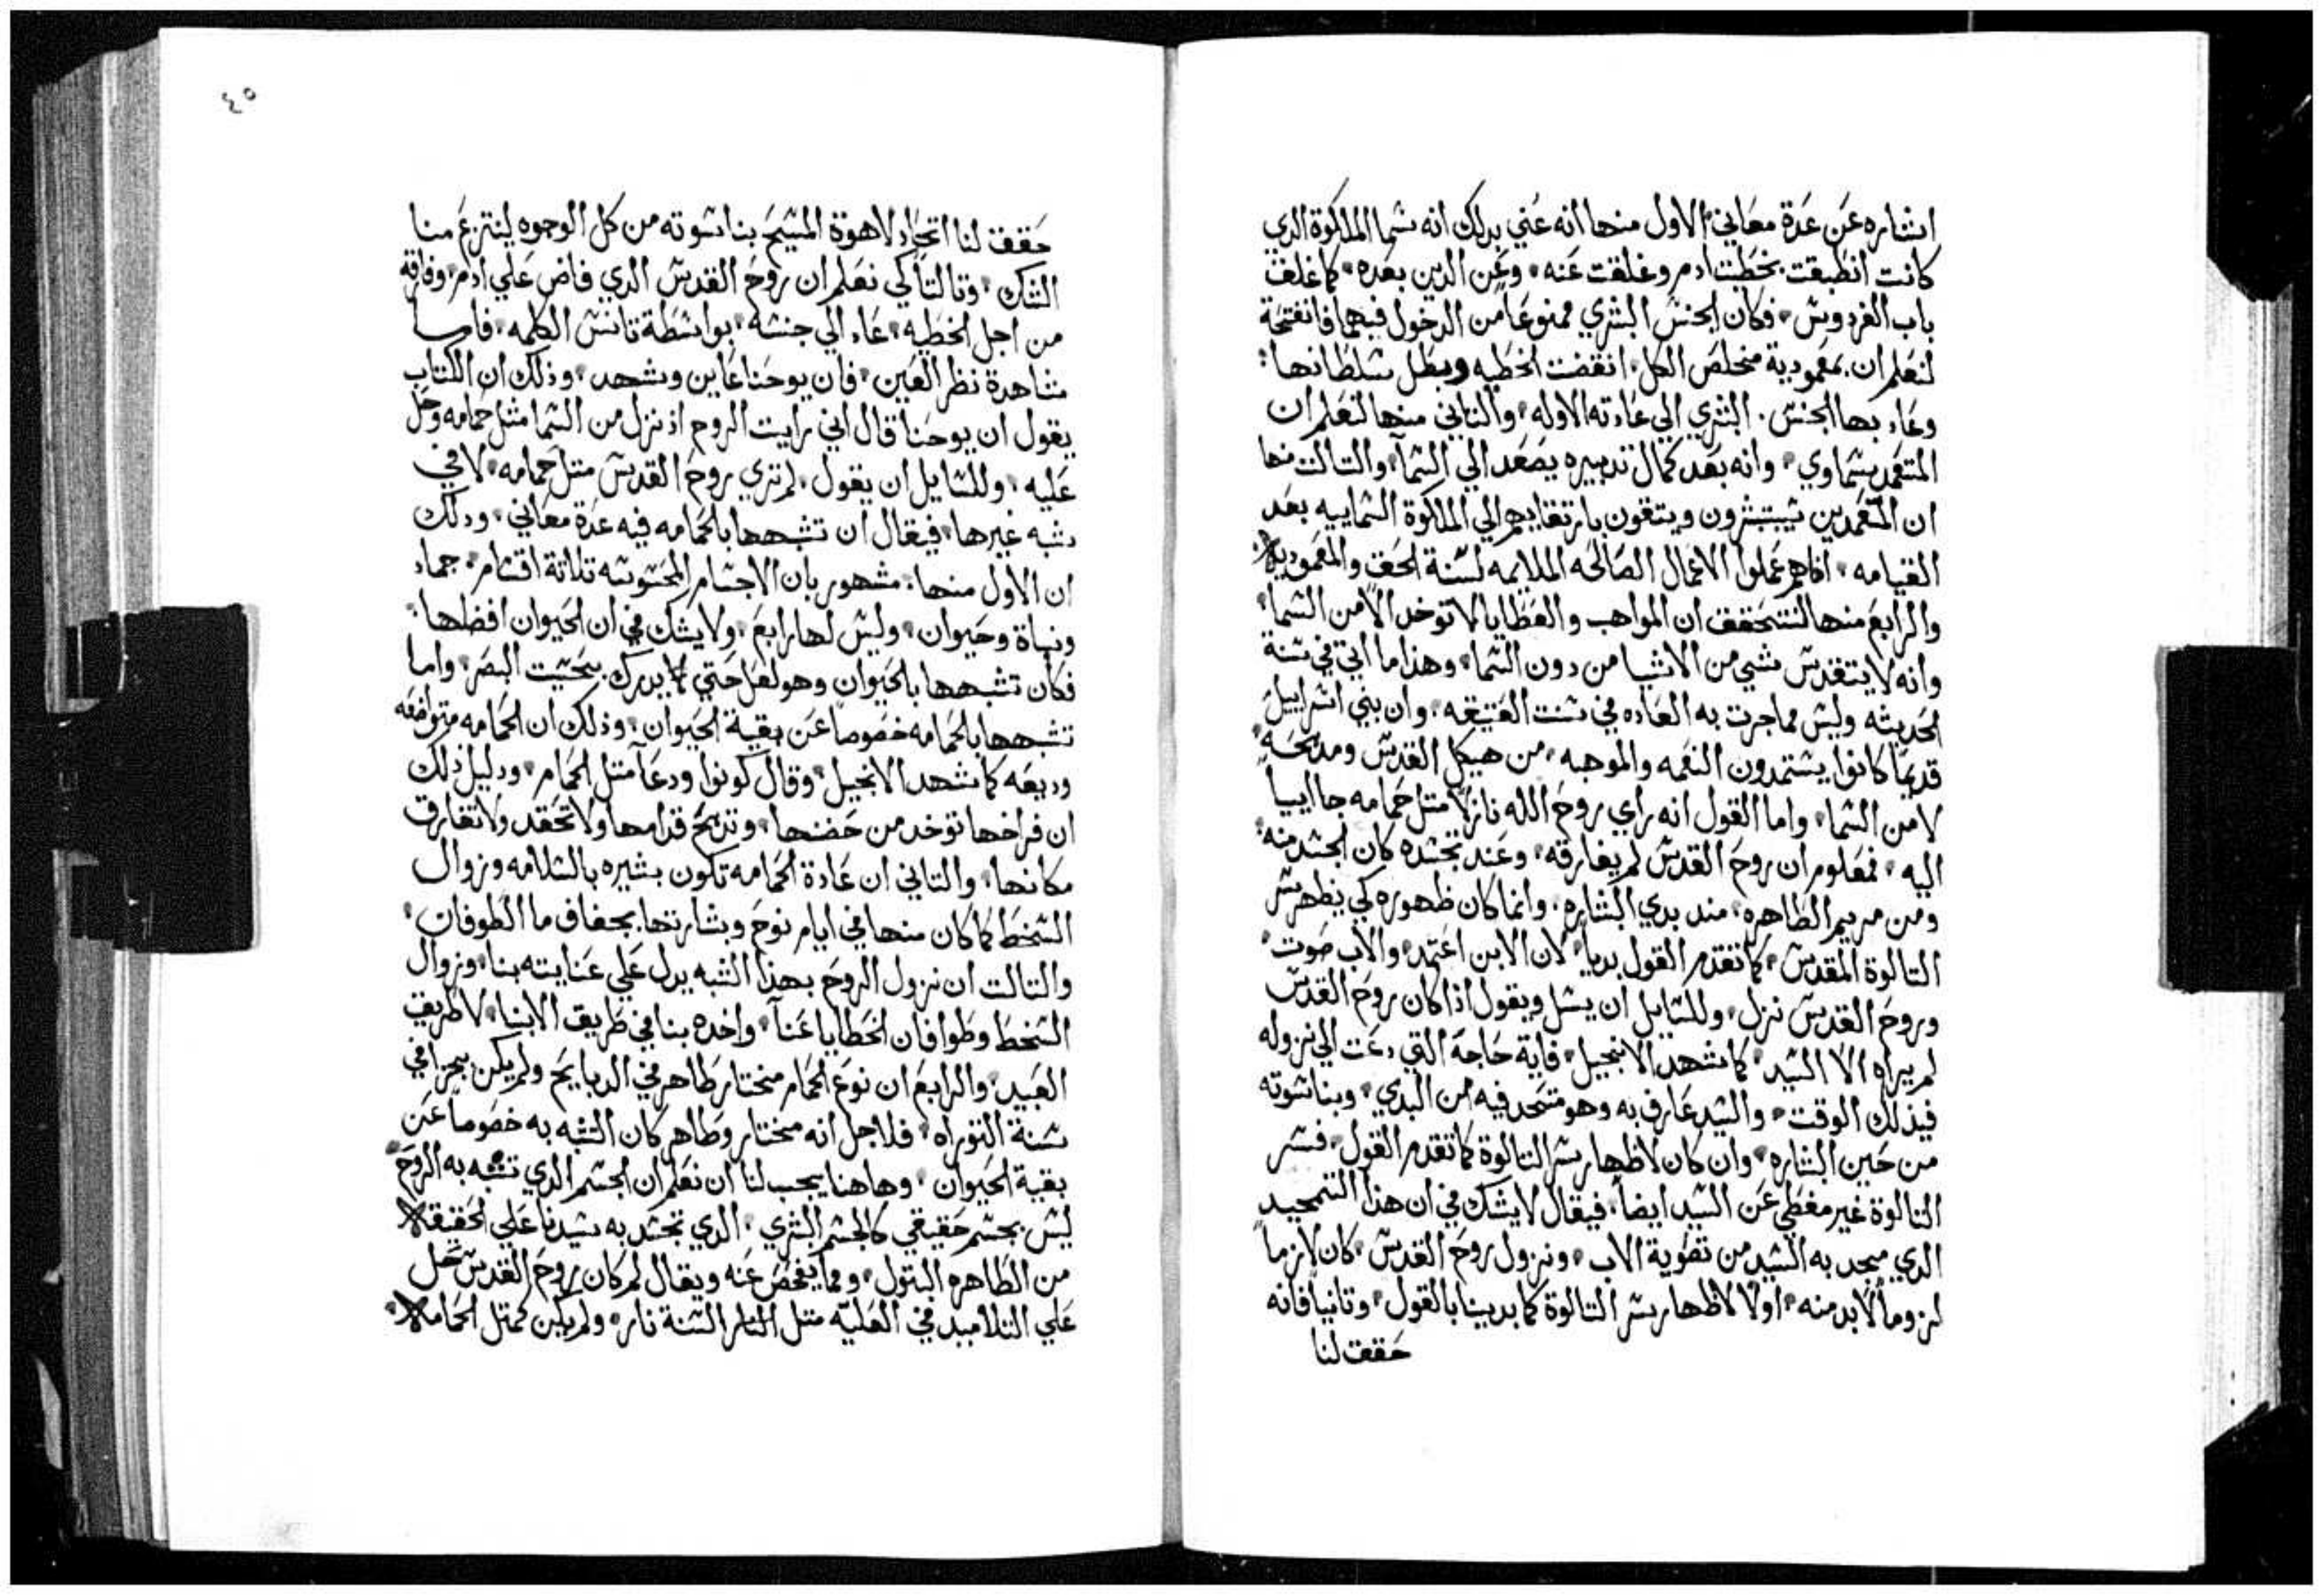 اشاره عن عدة معاني الاول منها انه عني بدلك انه شما الملاكوة الدي
كانت انطبقت بخطيت ادم وغلقت عنه وعن الدين بعده كما غلف
باب الفردوس فكان الجنس البشري ممنوعا من الدخول فيهما فانفتحة
لنعلم ان بمعمودية مخلص الكل انقضت الخطيه وبطل سلطانها
وعاد بها الجنس البشري الي عادته الاوله والتاني منها لنعلم ان
المتعمد سماوي وانه بعد كمال تدبيره يصعد الي السماء والتالت منها
ان المتعمدين يستبشرون ويتقون بارتقايهم الي الملاكوة السماييه بعد
القيامه اداهم عملوا الاعمال الصالحه الملايمه لسنة الحق والمعموديه
والرابع منها لنتحقق ان المواهب والعطايا لا توخد الا من السما
وانه لا يتقدس شي من الاشيا من دون السما وهذا ما اتي في سنة
الحديثه وليس مما جرت به العاده في سنت العتيقه وان بني اسراييل
قديما كانوا يستمدون النعمه والموهبه من هيكل القدس ومدبحه
لا من السما واما القول انه راي روح الله نازلا متل حمامه جاايبا
اليه فمعلوم ان روح القدس لم يفارقه وعند تجسده كان الجسد منه
ومن مريم الطاهره مند بدي البشاره وانما كان ظهوره كي يظهر سر
التالوة المقدس كما تقدم القول بديا لان الابن اعتمد والاب صوت
وروح القدس نزل وللسايل ان يسل ويقول اذا كان روح القدس
لم يراه الا السيد كما شهد الانجيل فاية حاجة التي دعت الي نزوله
فيذلك الوقت والسيد عارف به وهو متحد فيه من البدي وبناسوته
من حين البشاره وان كان لاظهار سر التالوة كما تقدم القول فسر
التالوة غير مغطي عن السيد ايضا فيقال لا يشك في ان هذا التمجيد
الدي مجد به السيد من تصوية الاب ونزول روح القدس كان لازما
لزوما لابد منه اولا لاظهار سر التالوة كما بدينا بالقول وتانيا فانه
حقق لنا
٤٥
حقق لنا اتحاد لاهوة المسيح بناسوته من كل الوجوه لينتزع منا
الشك وتالتا كي نعلم ان روح القدس الدي فاض علي ادم وفارقه
من اجل الخطيه عاد الي جنسه بواسطة تانس الكلمه فاما
مشاهدة نظر العين فان يوحنا عاين وشهد وذلك ان الكتاب
يقول ان يوحنا قال اني رايت الروح اذ نزل من السما متل حمامه وحل
عليه وللسايل ان يقول لم تري روح القدس متل حمامه لا في
شبه غيرها فيقال ان تشبهها بالحمامه فيه عدة معاني ودلك
ان الاول منها مشهور بان الاجسام المحسوسه تلاتة اقسام جماد
ونباة وحيوان وليس لها رابع ولا يشك في ان الحيوان افضلها
فكان تشبهها بالحيوان وهو لعل حتي يدرك بحيت البصر واما
تشبهها بالحمامه خصوصا عن بقية الحيوان وذلك ان الحمامه متواضعه
وديعه كما شهد الانجيل وقال كونوا ودعا متل الحمام ودليل ذلك
ان فراخها توخد من حضنها وتدبح قدامها ولا تحقد ولا تفارق
مكانها والتاني ان عادة الحمامه تكون بشيره بالسلامه وزوال
السخط كما كان منها في ايام نوح وبشارتها بجفاف ما الطوفان
والتالت ان نزول الروح بهذا الشبه يدل علي عنايته بنا وزوال
السخط وطوافان الخطايا عنا واخده بنا في طريق الابنا لا طريق
العبيد والرابع ان نوع الحمام مختار طاهر في الدبايح ولم يكن يجزا في
سنة التوراه فلاجل انه مختار وطاهر كان التشبه به خصوصا عن
بقية الحيوان وهاهنا يجب لنا ان نعلم ان الجسم الدي تشبه به الروح
ليس بجسم حقيقي كالجسم البشري الدي تجسد به سيدنا علي الحقيقه
من الطاهره البتول ومما يفحص عنه ويقال لم كان روح القدس حل
علي التلاميد في العليه متل السنة ناره ولم يكن كمتل الحمامه